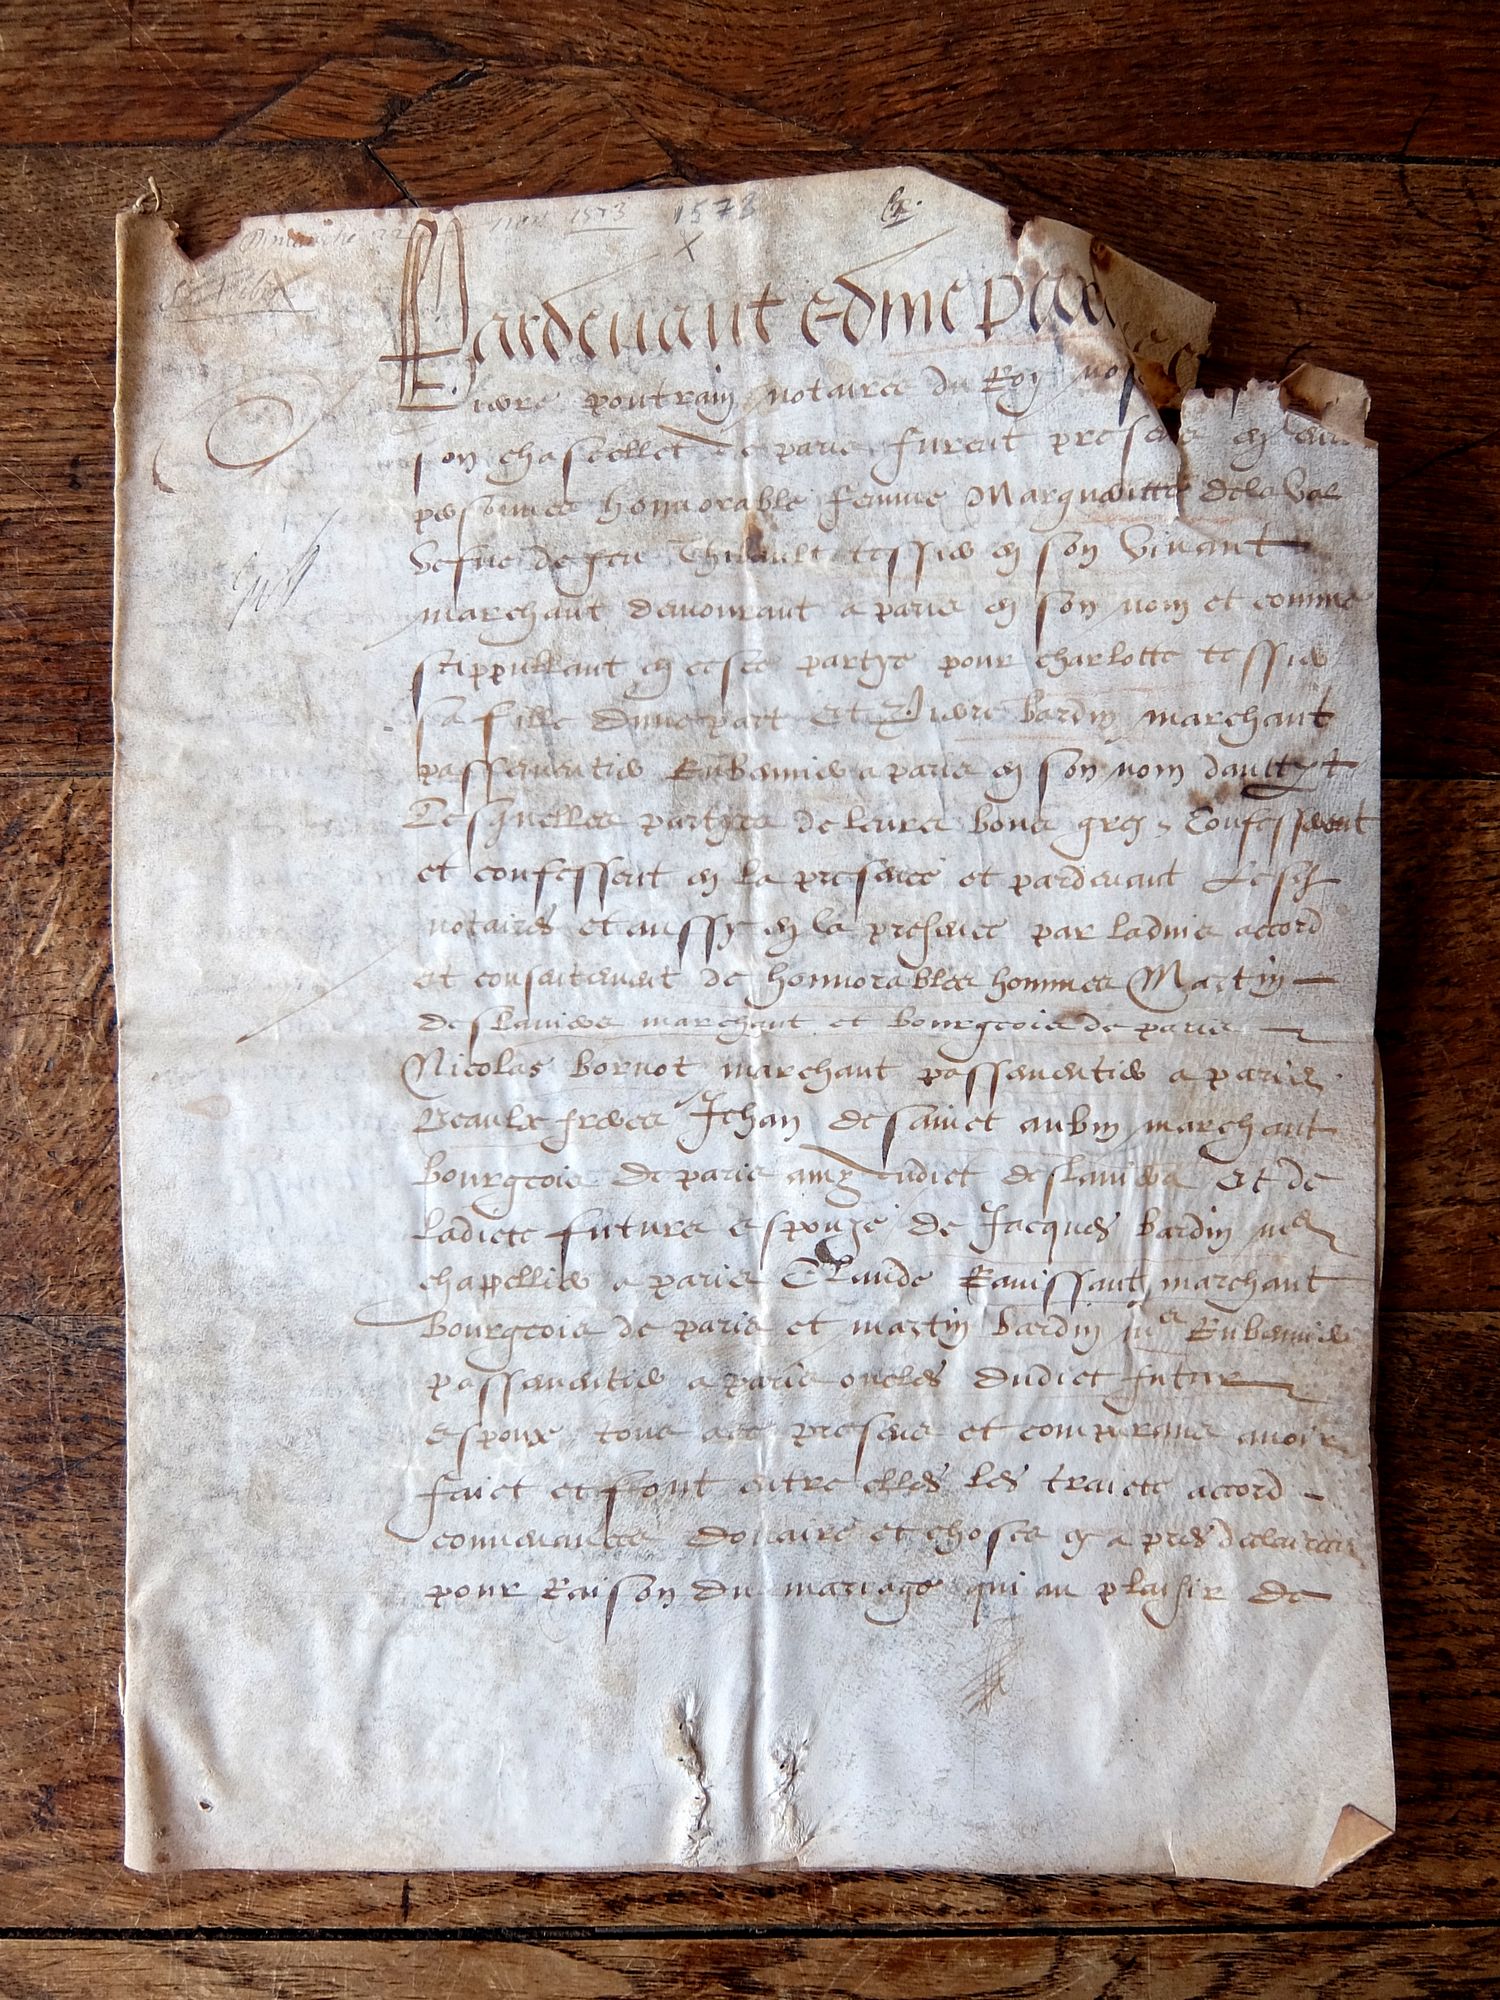 1573 1573
Pardevant Edme
Pierre poutrain notaires du Roy
son chastellet de paris furent presens en leurs
personnes honnorable femme Margueritte de laval
vefue de feu Thibault tessier en son vivant
marchant demourant a paris en son nom et comme
stippullant en ceste partye pour charlotte tessier
sa fille dune part Et Pierre bardin marchant
passementier Rubannier a paris en son nom daultre part
Lesquelles partyes de leurs bons grez Confesserent
et confessent en la presence et pardevant Lesd
notaires et aussy en la presence par ladvis accord
et consentement de honnorables hommes Martin
deslauiers marchant et bourgeois de paris
Nicolas bornot marchant passementier a paris
Beaulx freres Jehan de sainct aubin marchant
bourgeois de paris amy dudict deslauiers Et de
ladicte future espouze de Jacques bardin me
chapellier a paris Claude Rauissant marchant
bourgeois de paris et martin bardin me Rubannier
passementier a paris oncles dudict futur
espoux tous ace presens et comparans avoir
faict et font entre elles les traicte accord
convenances douaire et choses cy apres declairees
pour Raison du mariage qui au plaisir de